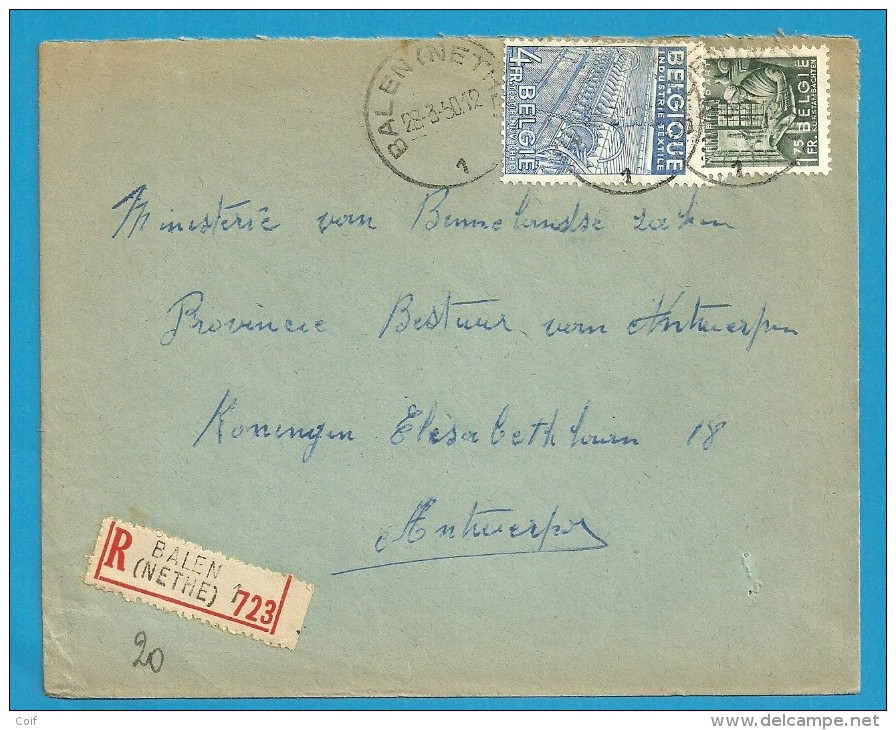 BALEN (NETHE)
29-3-50.12
1
4 FR. BELGIE
BELGIQUE
INDUSTRIE TEXTILE
TEXTIELNIJVERHEID
1
BELGIE
KUNSTAMBACHTEN
1.75 FR.
1
Ministerie van Binnelandse zaken
Provincie Bestuur van Antwerpen
Koningin Elisabethlaan 18
Antwerpen
R BALEN 1
(NETHE) 723
20
Coif
www.delcampe.net